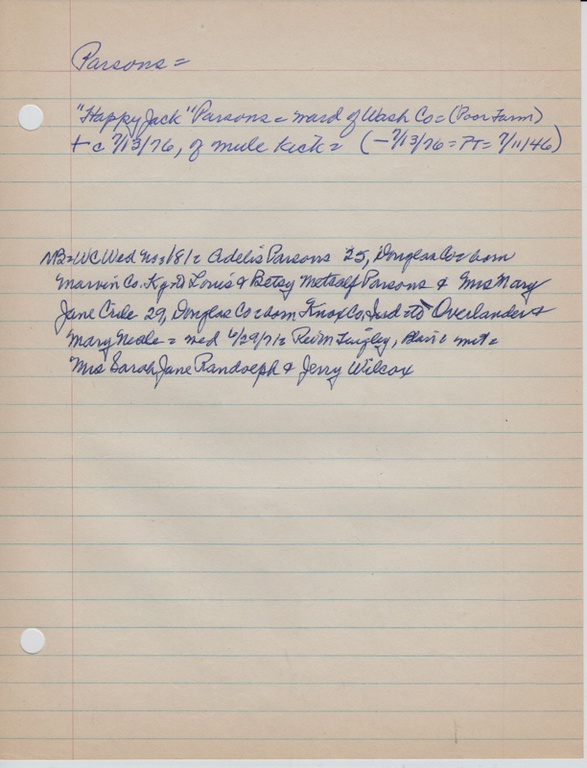 Parsons =
"Happy Jack" Parsons = ward of Wash Co = (Poor Farm)
+ c 7/13/76, of mule kick = (- 7/13/76 = PT = 7/11/46)
NB = WC Wed No 181 = Adelis Parsons 25, Douglas Co = born
Marvin Co. Ky = to Louis & Betsy Metcalf Parsons & Mrs Mary
Jane Crile 29, Douglas Co = born Knox Co, Ind = to Overlander &
Mary Neale = wed 4/29/71 = Rev Wm Lingley, Blair = wit =
Mrs Sarah Jane Randolph & Jerry Wilcox